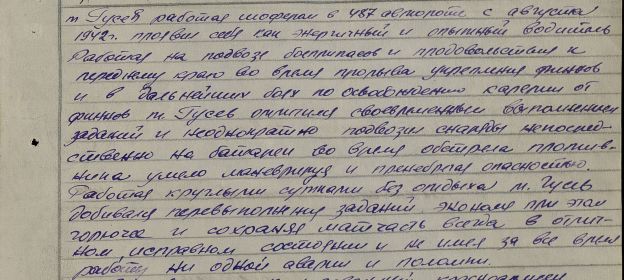 т. Гусев работая шофером в 487 автороте с августа
1942 г. проявил себя как энергичный и опытный водитель
Работая на подвозе боеприпасов и продовольствия к
переднему краю во время прорыва укрепления финнов
и в дальнейших боях по освобождению карелии от
финнов т. Гусев отличился своевременным выполнением
заданий и неоднократно подвозил снаряды непосред-
ственно на батареи во время обстрела против-
ника умело маневрируя и пренебрегая опасностью.
Работая круглыми сутками без отдыха т. Гусев
добивался перевыполнения заданий экономя при этом
горючее и сохраняя матчасть всегда в отлич-
ном исправном состоянии и не имея за все время
работы ни одной аварии и поломки.